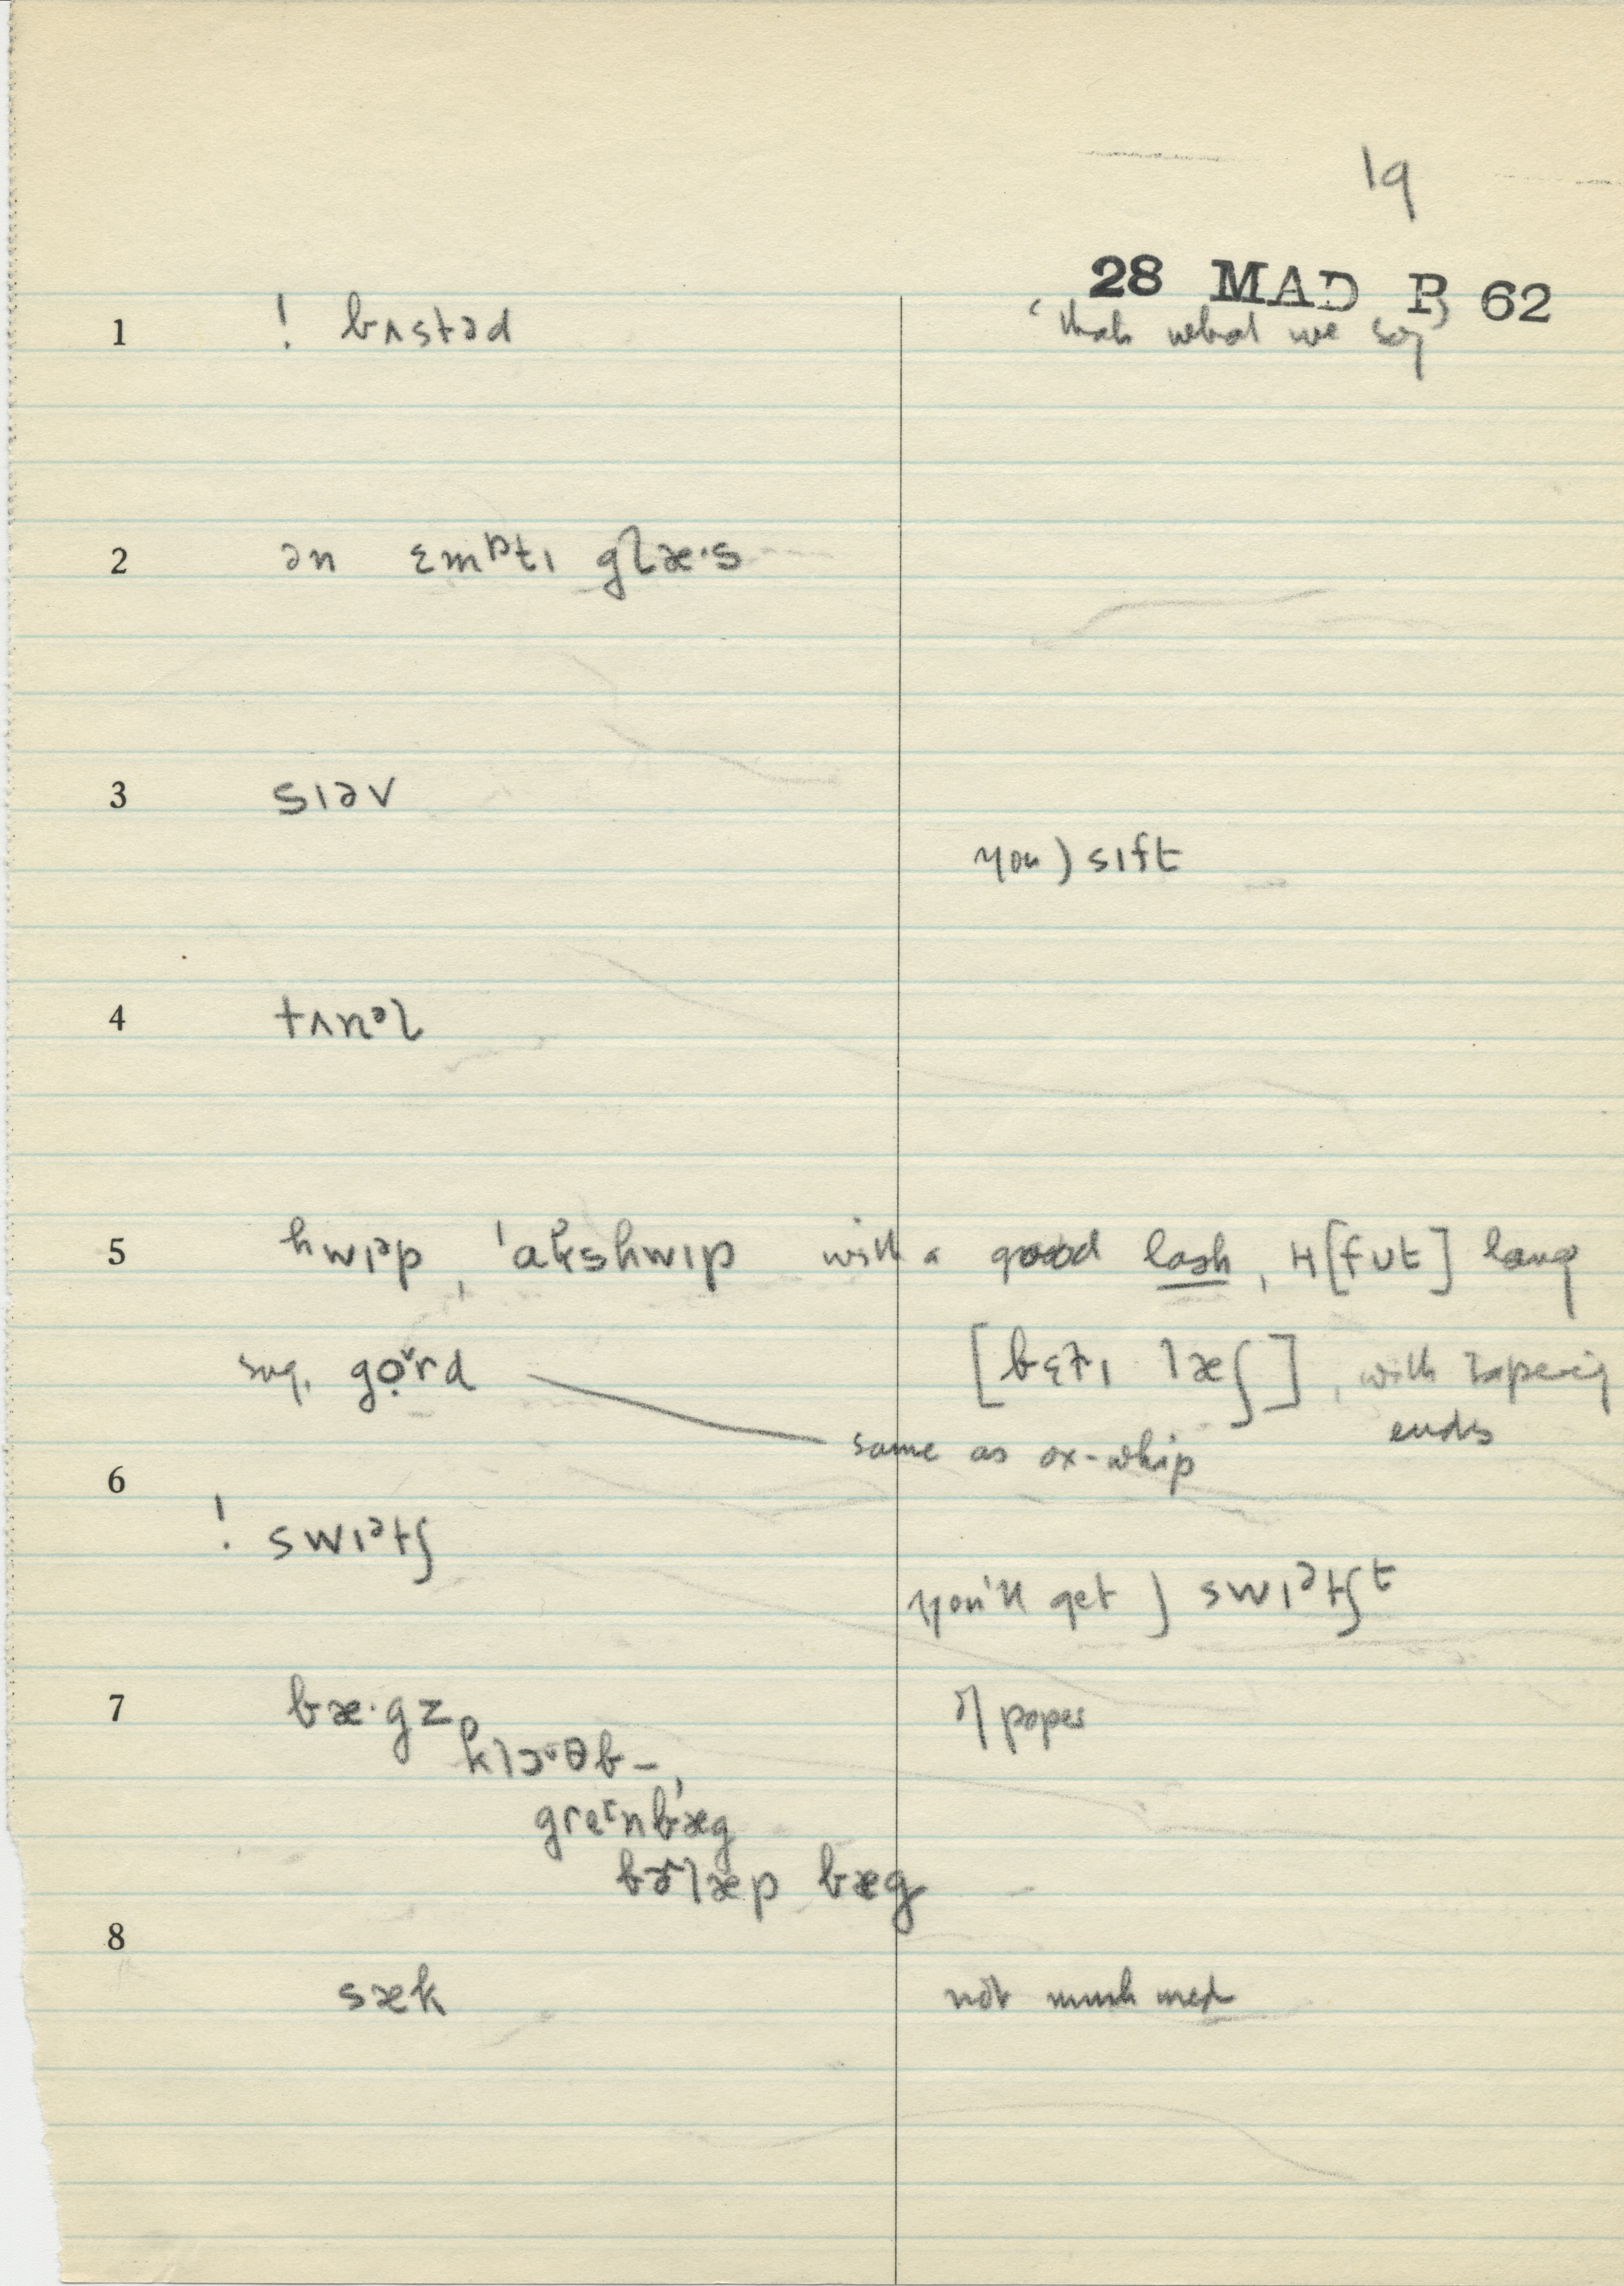 19
28 MAD P 62
1 ! bʌstəd 'thats what we say'
2 ən ɛmᵖtɪ glæ·s
3 sɪəv
you) sɪft
4 tʌnᵊl
5 hwɪᵊp, 'akshwɪp with a good lash, 4[fʊt] long
sug. gọᵛrd [bɛt̬ɪ læʃ], with tapering
ends
same as ox-whip
6
! swɪᵊtʃ
you'll get) swɪᵊtʃt
7 bæ·gz of paper
klɔᶷθb-,
greᶦnbæg
bɚlæp bæg
8
sæk not much used